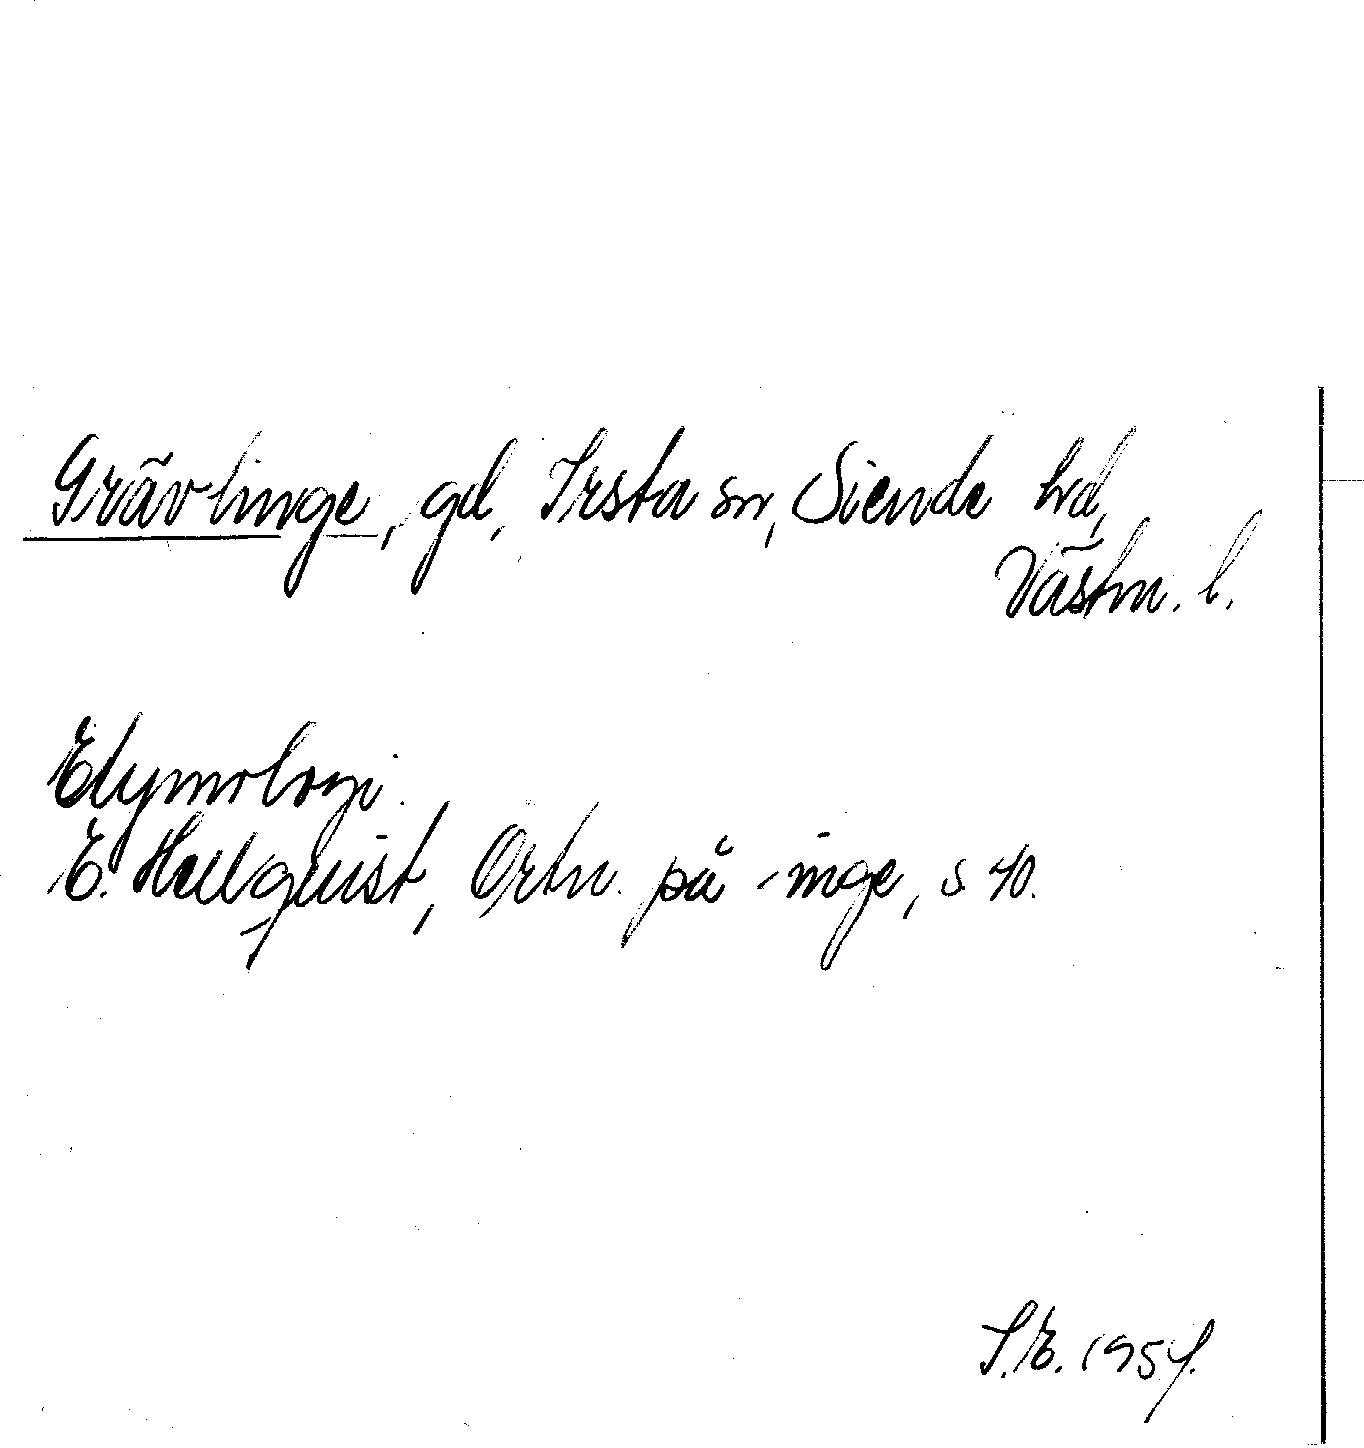 Grävlinge, gd, Irsta sn, Siende hd,
Västm. l.
Etymologi.
E. Hellquist, Ortn. på -inge, s 40.
S.E. 1954.